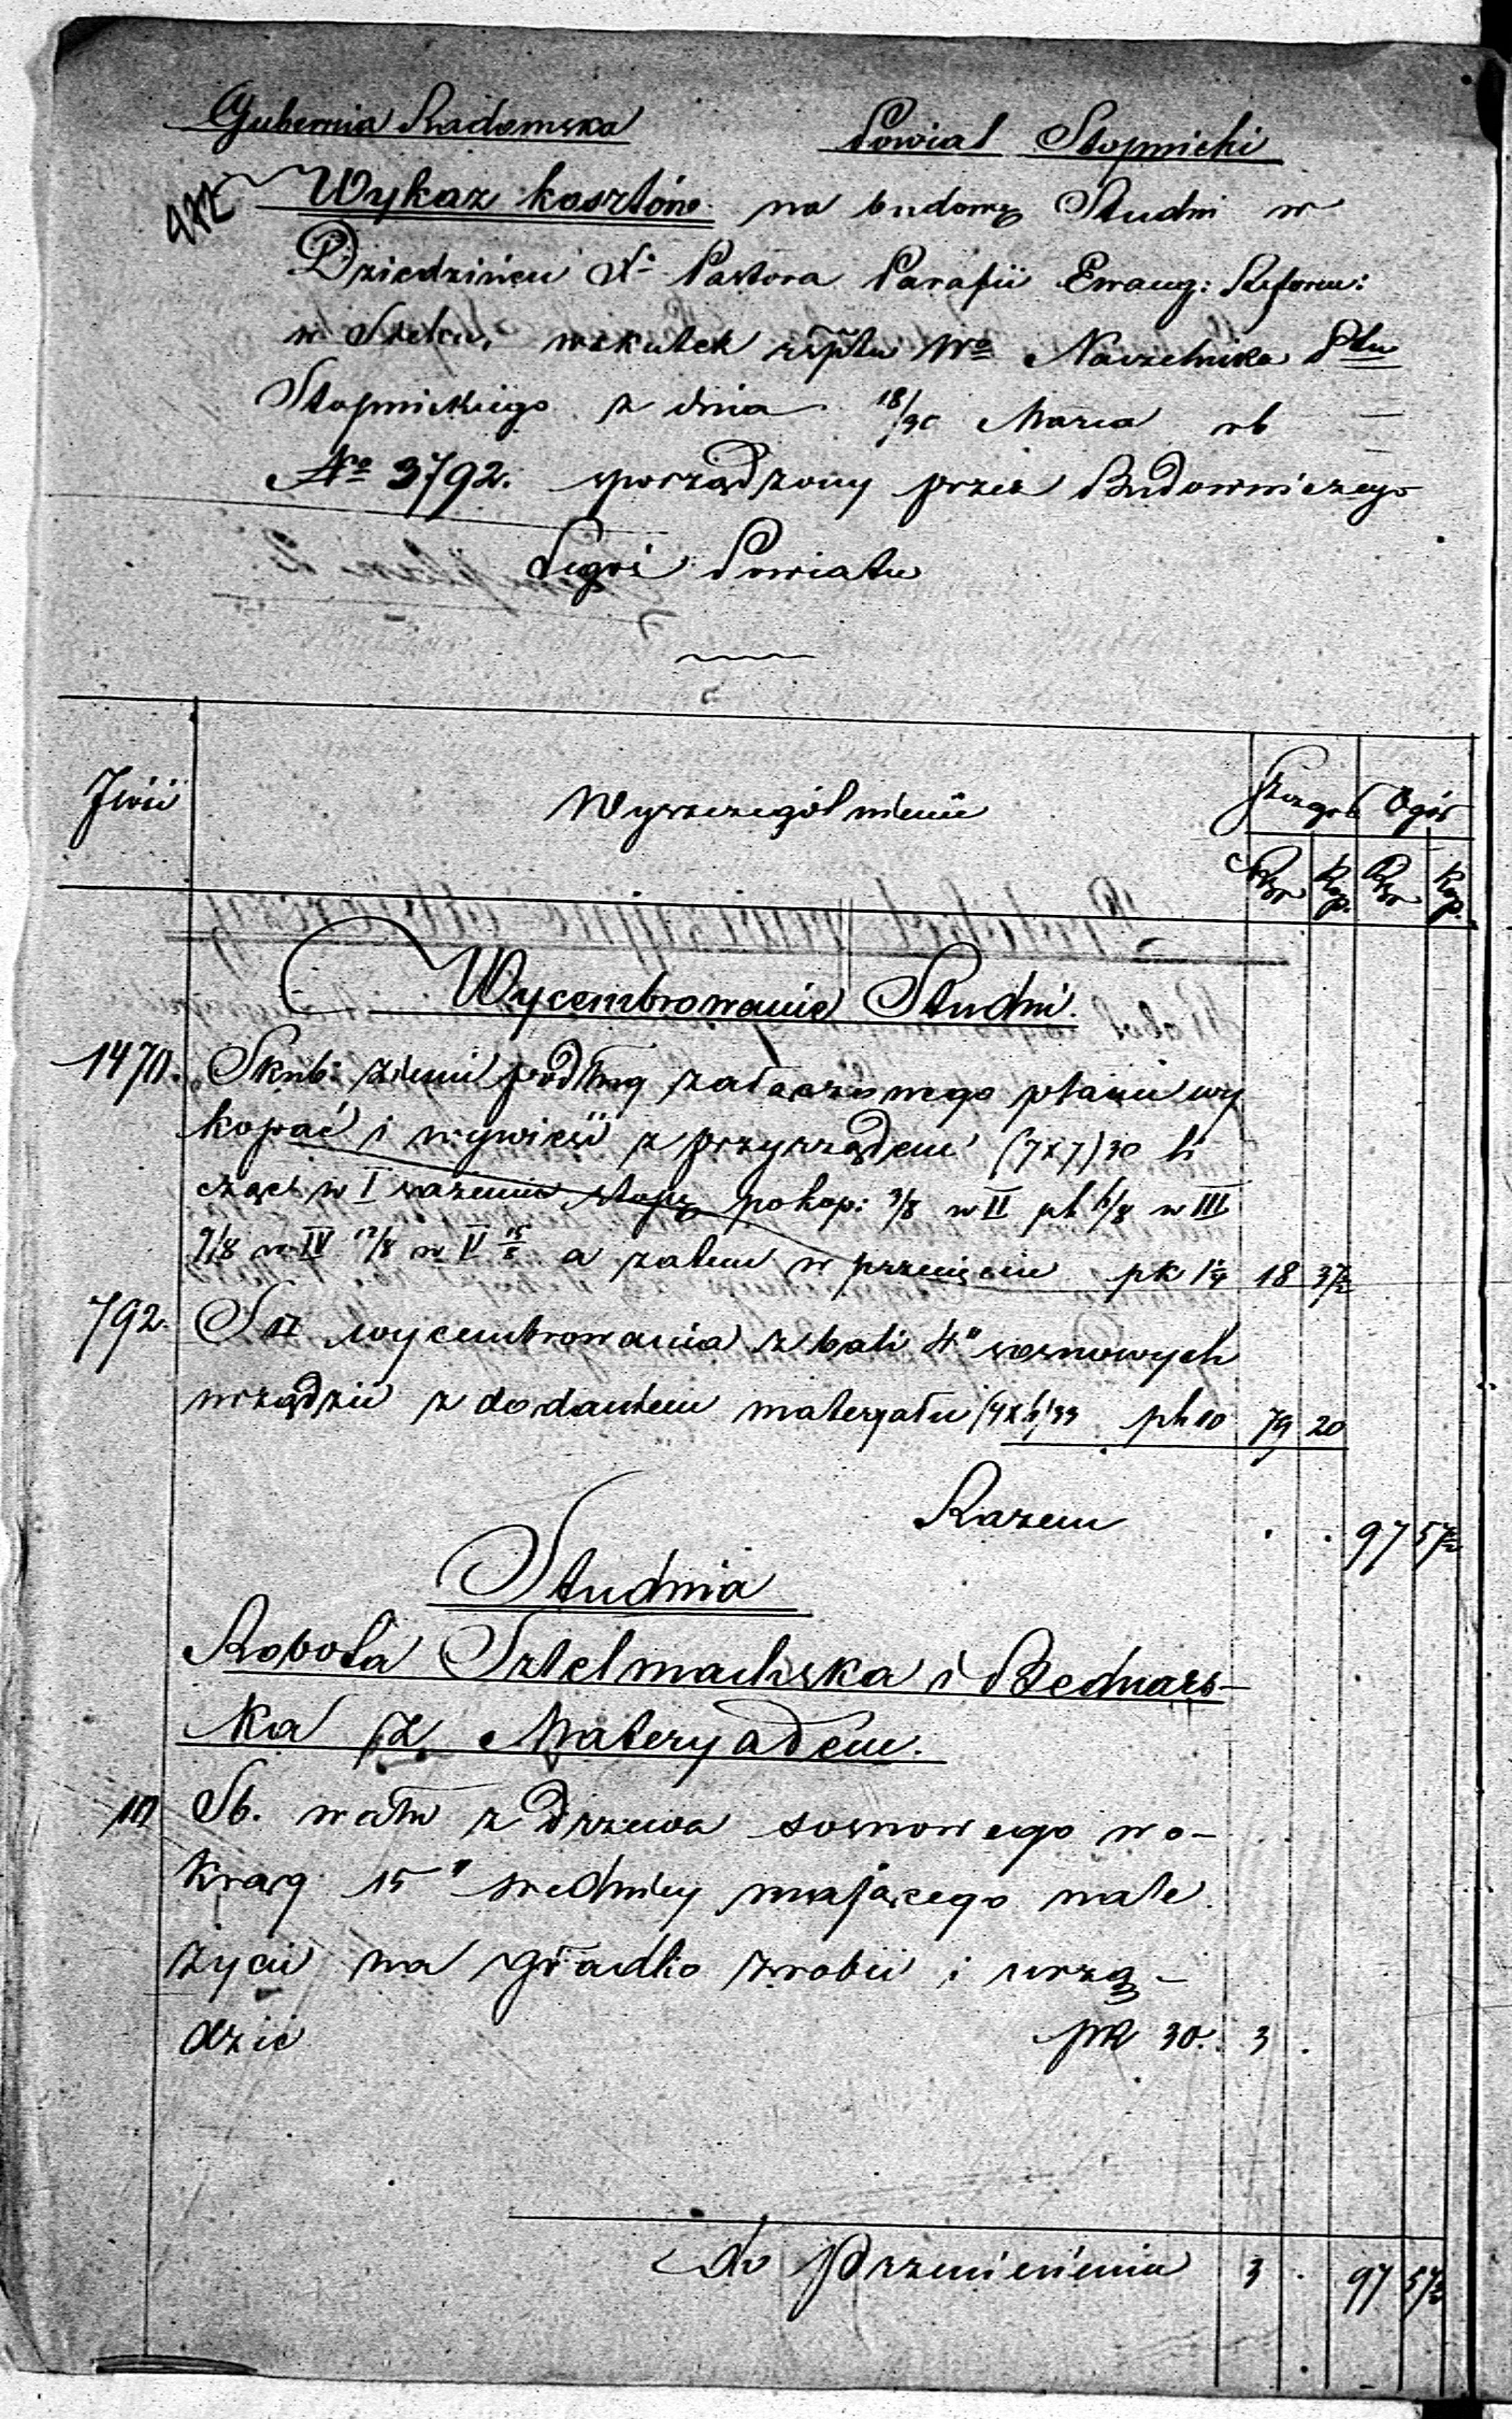 Gubernia Radomska Powiat Stopnicki
Wykaz kosztów na budowę Studni w
Dziedzińcu X. Pastora Parafii Ewang: Reform:
w Sielcu, wskutek rsptu Wo Naczelnika Ptu
Stopnickiego z dnia 18/30 Marca rb
No 3792. sporządzony przez Budowniczego
tegoż Powiatu
Ilość Wyszczególnienie Szczegół Ogół
Rsr Kop. Rsr Kop.
Wycembrowanie Studni.
1470. Skub: ziemi podług załączonego planu wy
kopać i wywieść z przyrządem (7x7)30 li
cząc w I sążeniu stopę po kop: 3/8 w II pk 6/8 w III
9/8 w IV 12/8 w V 15/8 a zatem w przecięciu pk 1 1/4 18 37 1/2
792. wycembrowania z bali 4" sosnowych
urządzić z dodaniem materyału pk 10 79 20
Razem . . 97 57 1/2
Studnia
Robota Sztelmachska i Bednars-
ka z Materyałem.
10 Sb. wału z drzewa sosnowego wo-
krąg 15" średnicy mającego nale
życie na gładko zrobić i urzą-
dzić pk 30. 3 .
do przeniesienia 3 . 97 57 1/2